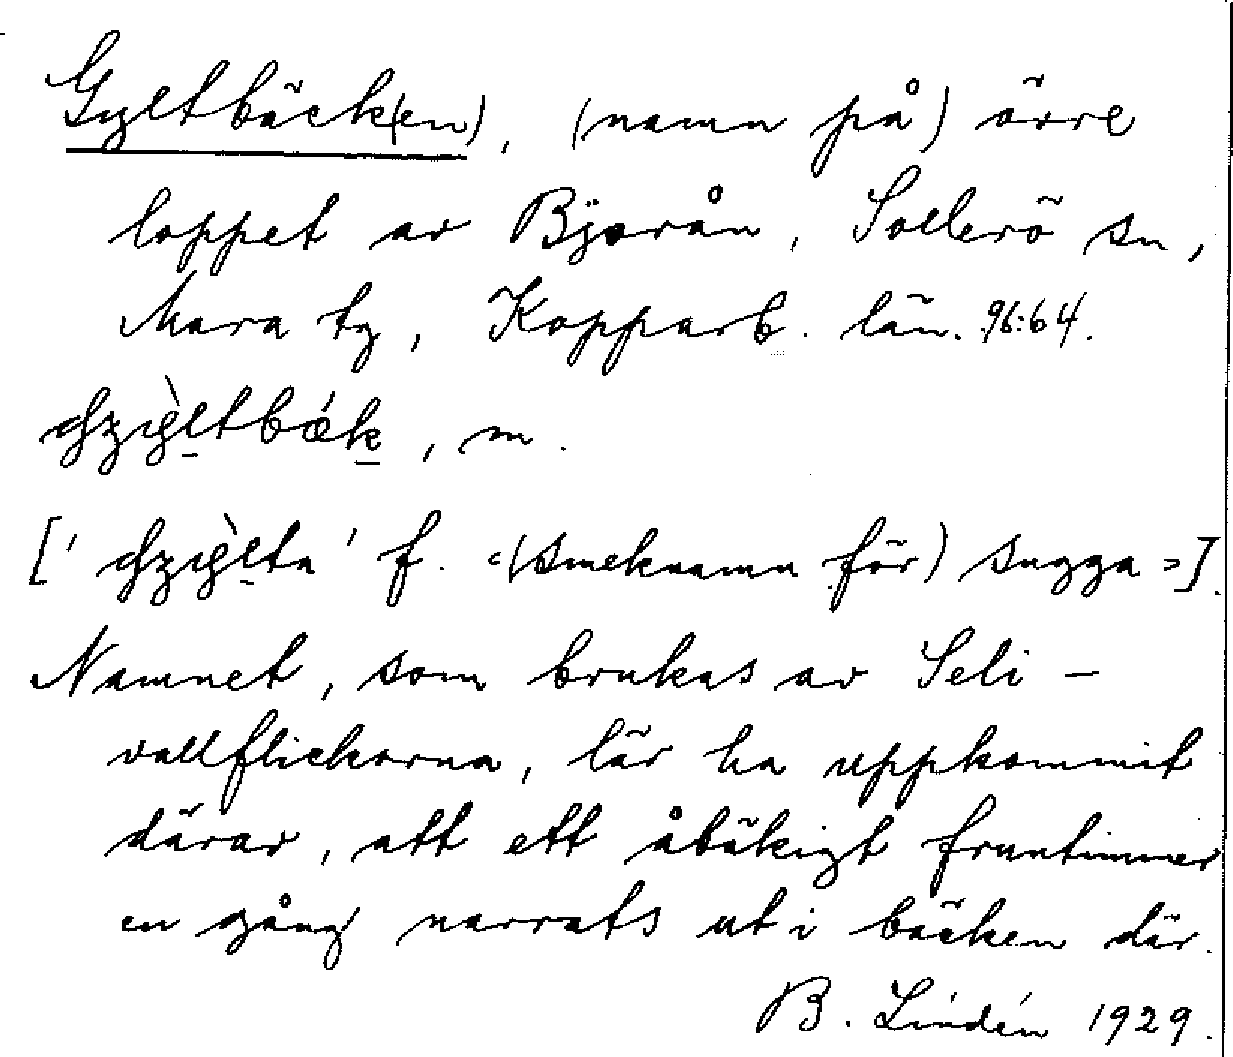 Gyltbäck(en), (namn på) övre
loppet av Bjorån, Sollerö sn,
Mora tg, Kopparb. län. 96:64.
, m.
[' ' f. "(smeknamn för) sugga"].
Namnet, som brukas av Seli-
vallflickorna, lär ha uppkommit
därav, att ett åbäkigt fruntimmer
en gång narrats ut i bäcken där.
B. Lindén 1929.